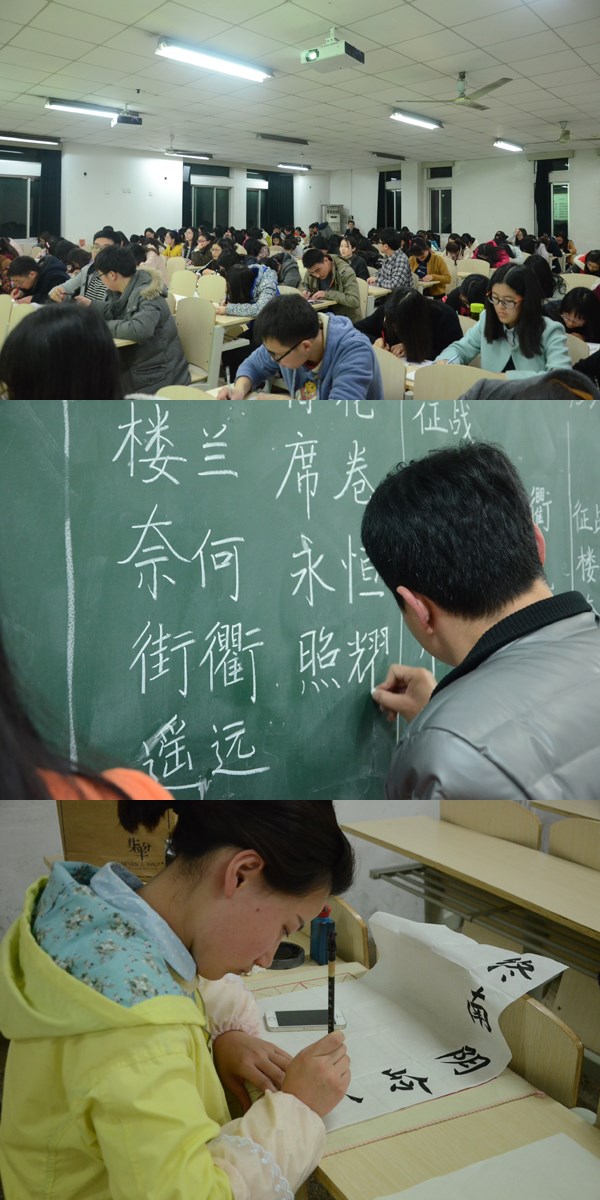 楼兰
奈何
街衢
遥远
席卷
永恒
照耀
征战
衢
征战
楼
终南阴岭